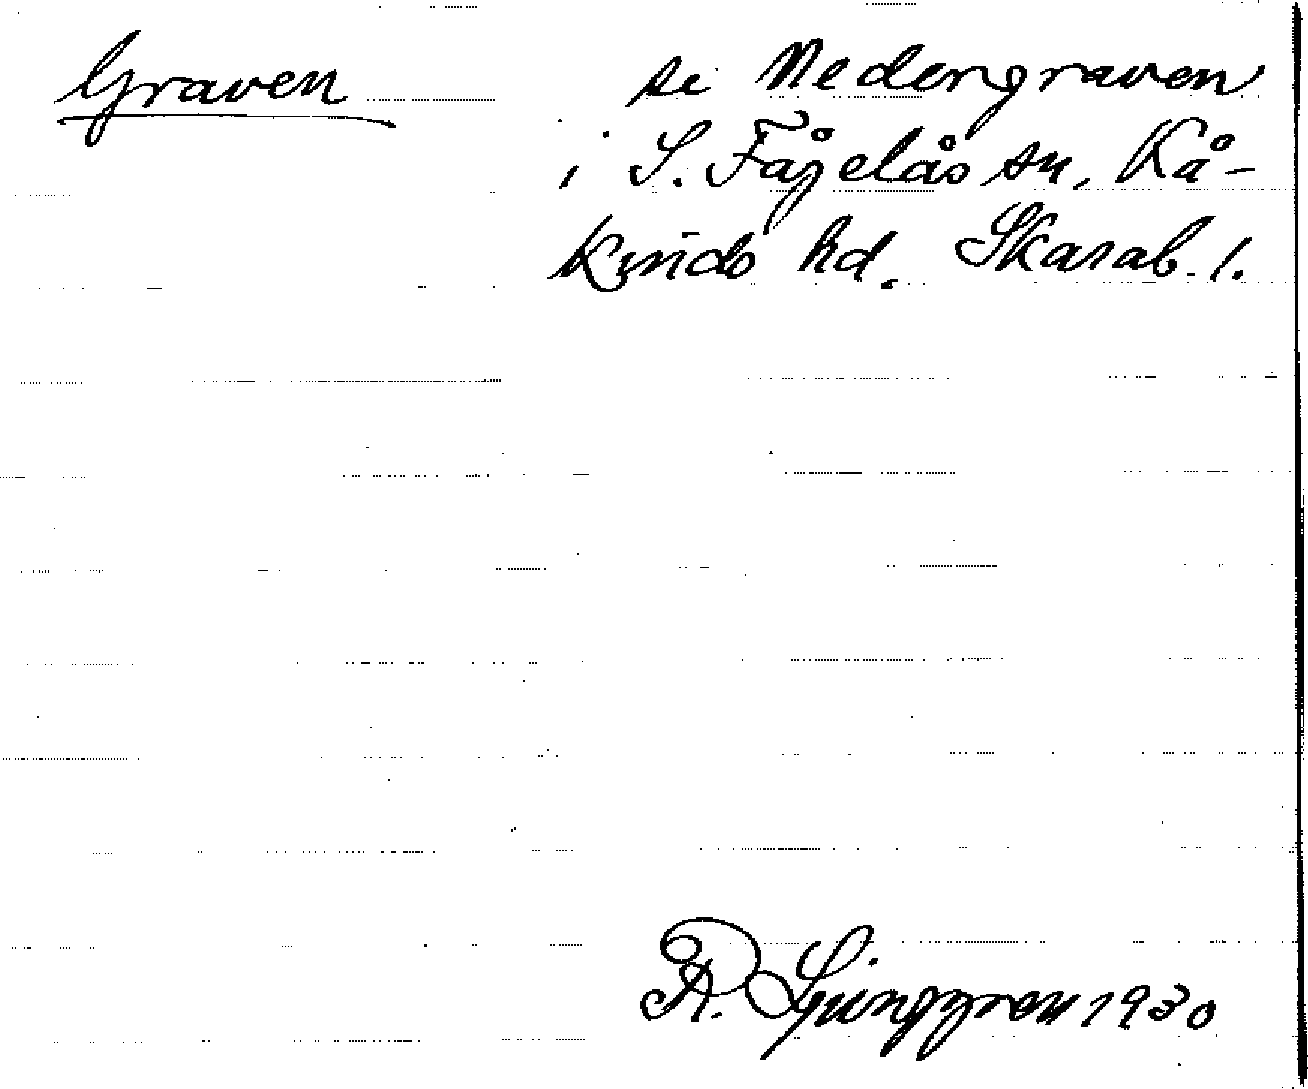 Graven se Nedergraven
i S. Fågelås sn, Kå-
kinds hd. Skarab. l.
R. Ljunggren 1930